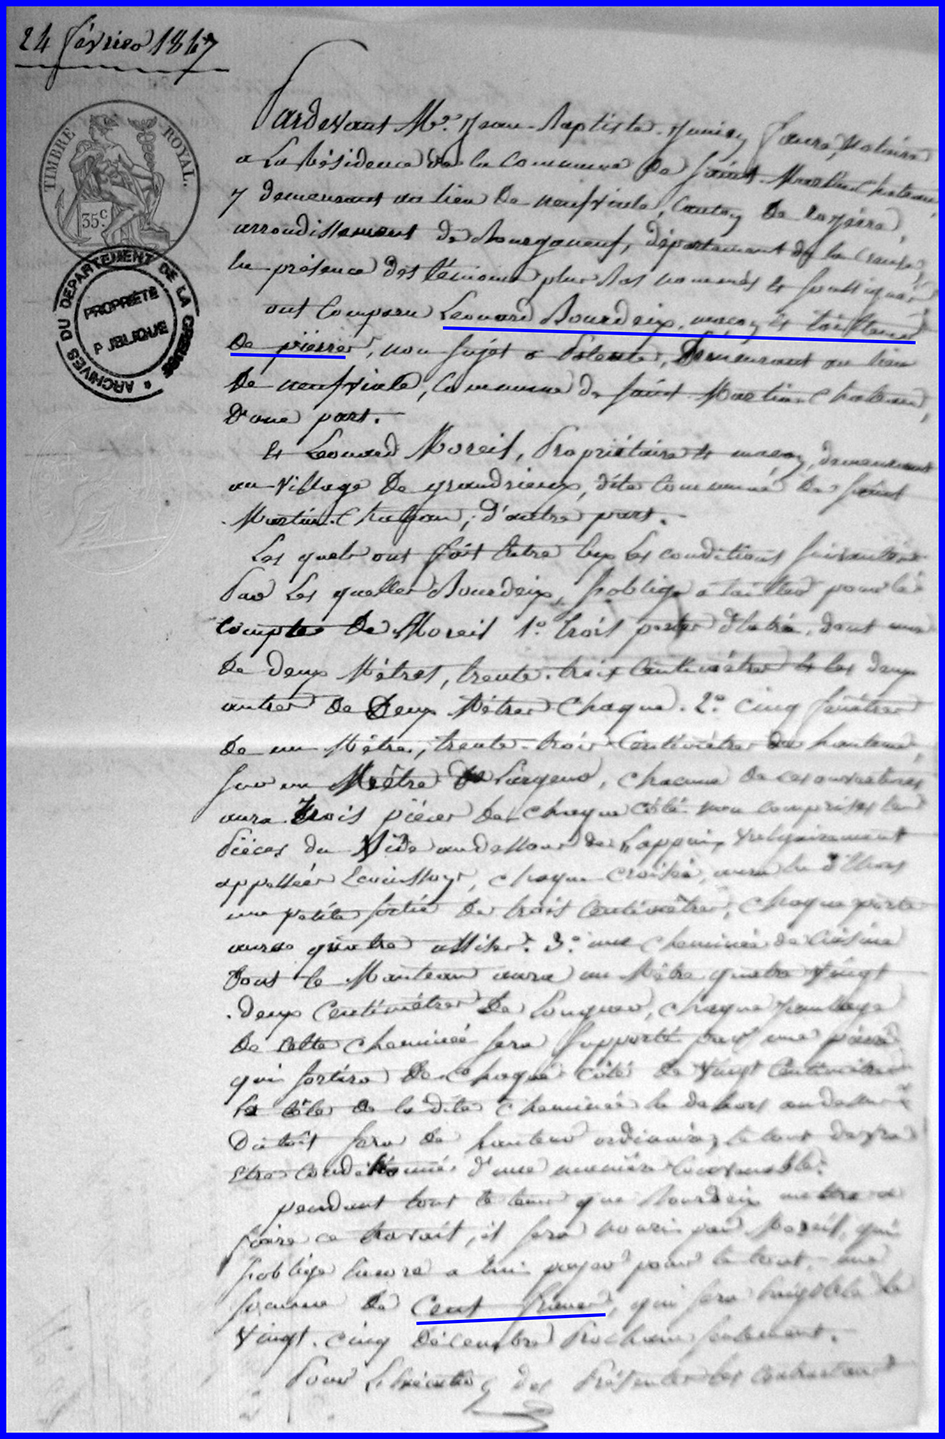 24 février 1847
TIMBRE ROYAL.
35c
ARCHIVES DU DÉPARTEMENT DE LA CREUSE
PROPRIÉTÉ
PUBLIQUE
Pardevant Me. Jean-Baptiste Junien Faure, Notaire
a La Résidence de la Commune de Saint Martin Chateau
y demeurant au lieu De neufviale, Canton De royère,
arrondissement de Bourganeuf, département de la Creuse,
En présence des témoins plus bas nommés et soussignés
ont Comparu Leonard Bourdeix, maçon et tailleur
De pierre, non sujet a Patente, Demeurant au lieu
De neufviale, Commune de Saint Martin Chateau,
D'une part.
Et Leonard Moreil, Propriétaire et maçon, demeurant
au Village De grandrieux, dite Commune De Saint
Martin Chateau, d'autre part.
Les quels ont fait Entre Eux Les conditions suivantes
Par Les quelles Bourdeix, s'oblige a tailler pour le
Compte De Moreil 1º. trois portes d'Entrée, dont une
De deux Mètres, trente-trois Centimètres et les deux
autres De Deux Mètres Chaque. 2º. cinq fenêtres
De un Mètre, trente-trois Centimètres de hauteur
sur un Mètre De Largeur, chacune De ces ouvertures
aura trois pièces De chaque Côté non comprises les
Pièces du Vide au dessous de L'appui, Vulgairement
appellées, chaque croisée, aura
une petite sortie De trois Centimètres, chaque porte
aura quatre assises. 3º. une cheminée de Cuisine
Dont le Manteau aura un Mètre quatre Vingt
deux Centimètres De Longueur, chaque jambage
De Cette cheminée sera supporté par une pierre
qui sortira De chaque Côté De Vingt Centimètres
La tête de la dite cheminée En dehors au dessus
Du toit sera De hauteur ordinaire, le tout devra
Etre Conditionné d'une manière Convenable.
pendant tout le tems que Bourdeix mettra a
faire ce travail, il sera nourri par Moreil, qui
s'oblige Encore a lui payer pour le tout, une
somme De Cent francs, qui sera Exigible le
Vingt-cinq décembre Prochain seulement.
Pour L'exécution des Présentes Les Contractants